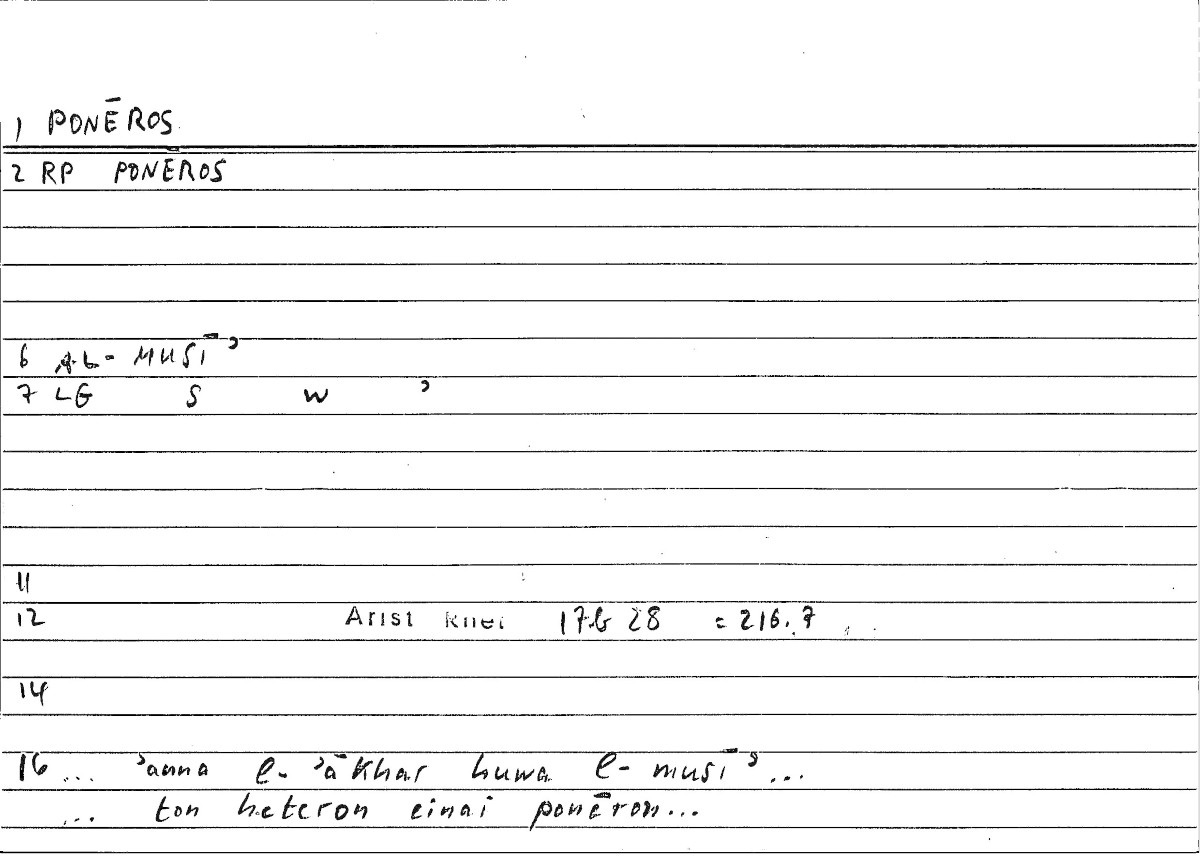 1 PONĒROS
2 RP PONĒROS
6 AL-MUSĪʾ
7 LG S W ʾ
11
12 Arist Rhet 17b 28 = 216.7
14
16 ... ʾanna l-ʾākhar huwa l-musīʾ...
... ton heteron einai ponēron...